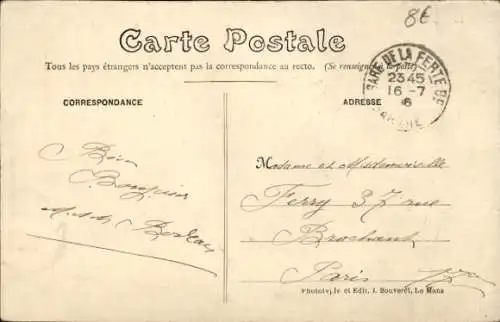 8€
Carte Postale
Tous les pays étrangers n'acceptent pas la correspondance au recto. (Se renseigner à la poste)
GARE DE LA FERTE
23 45
16 - 7
6
SARTHE
CORRESPONDANCE
ADRESSE
Bien
Bonjour
Madame et Mademoiselle
Ferry 37 rue
Brochant
Paris
Phototypie et Edit. J. Bouveret, Le Mans